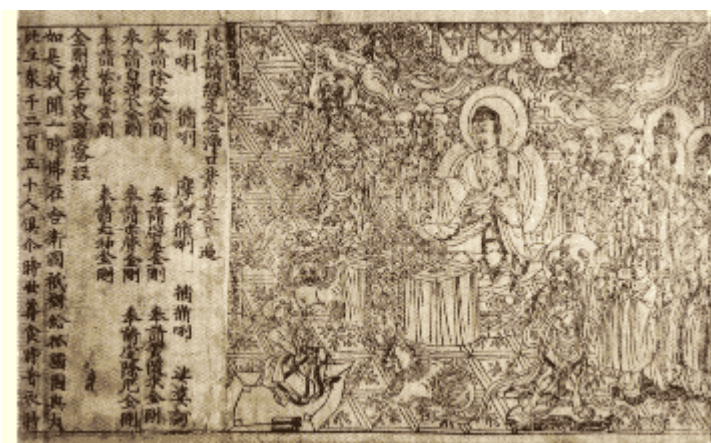 凡欲讀經先念淨口業真言一遍
脩唎 脩唎 摩訶脩唎 脩脩唎 娑婆訶
奉請除災金剛 奉請辟毒金剛 奉請黃隨求金剛
奉請白淨水金剛 奉請赤聲金剛 奉請定除厄金剛
奉請紫賢金剛 奉請大神金剛
金剛般若波羅蜜經
如是我聞一時佛在舍衛國祇樹給孤獨園與大
比丘衆千二百五十人俱尒時世尊食時着衣持